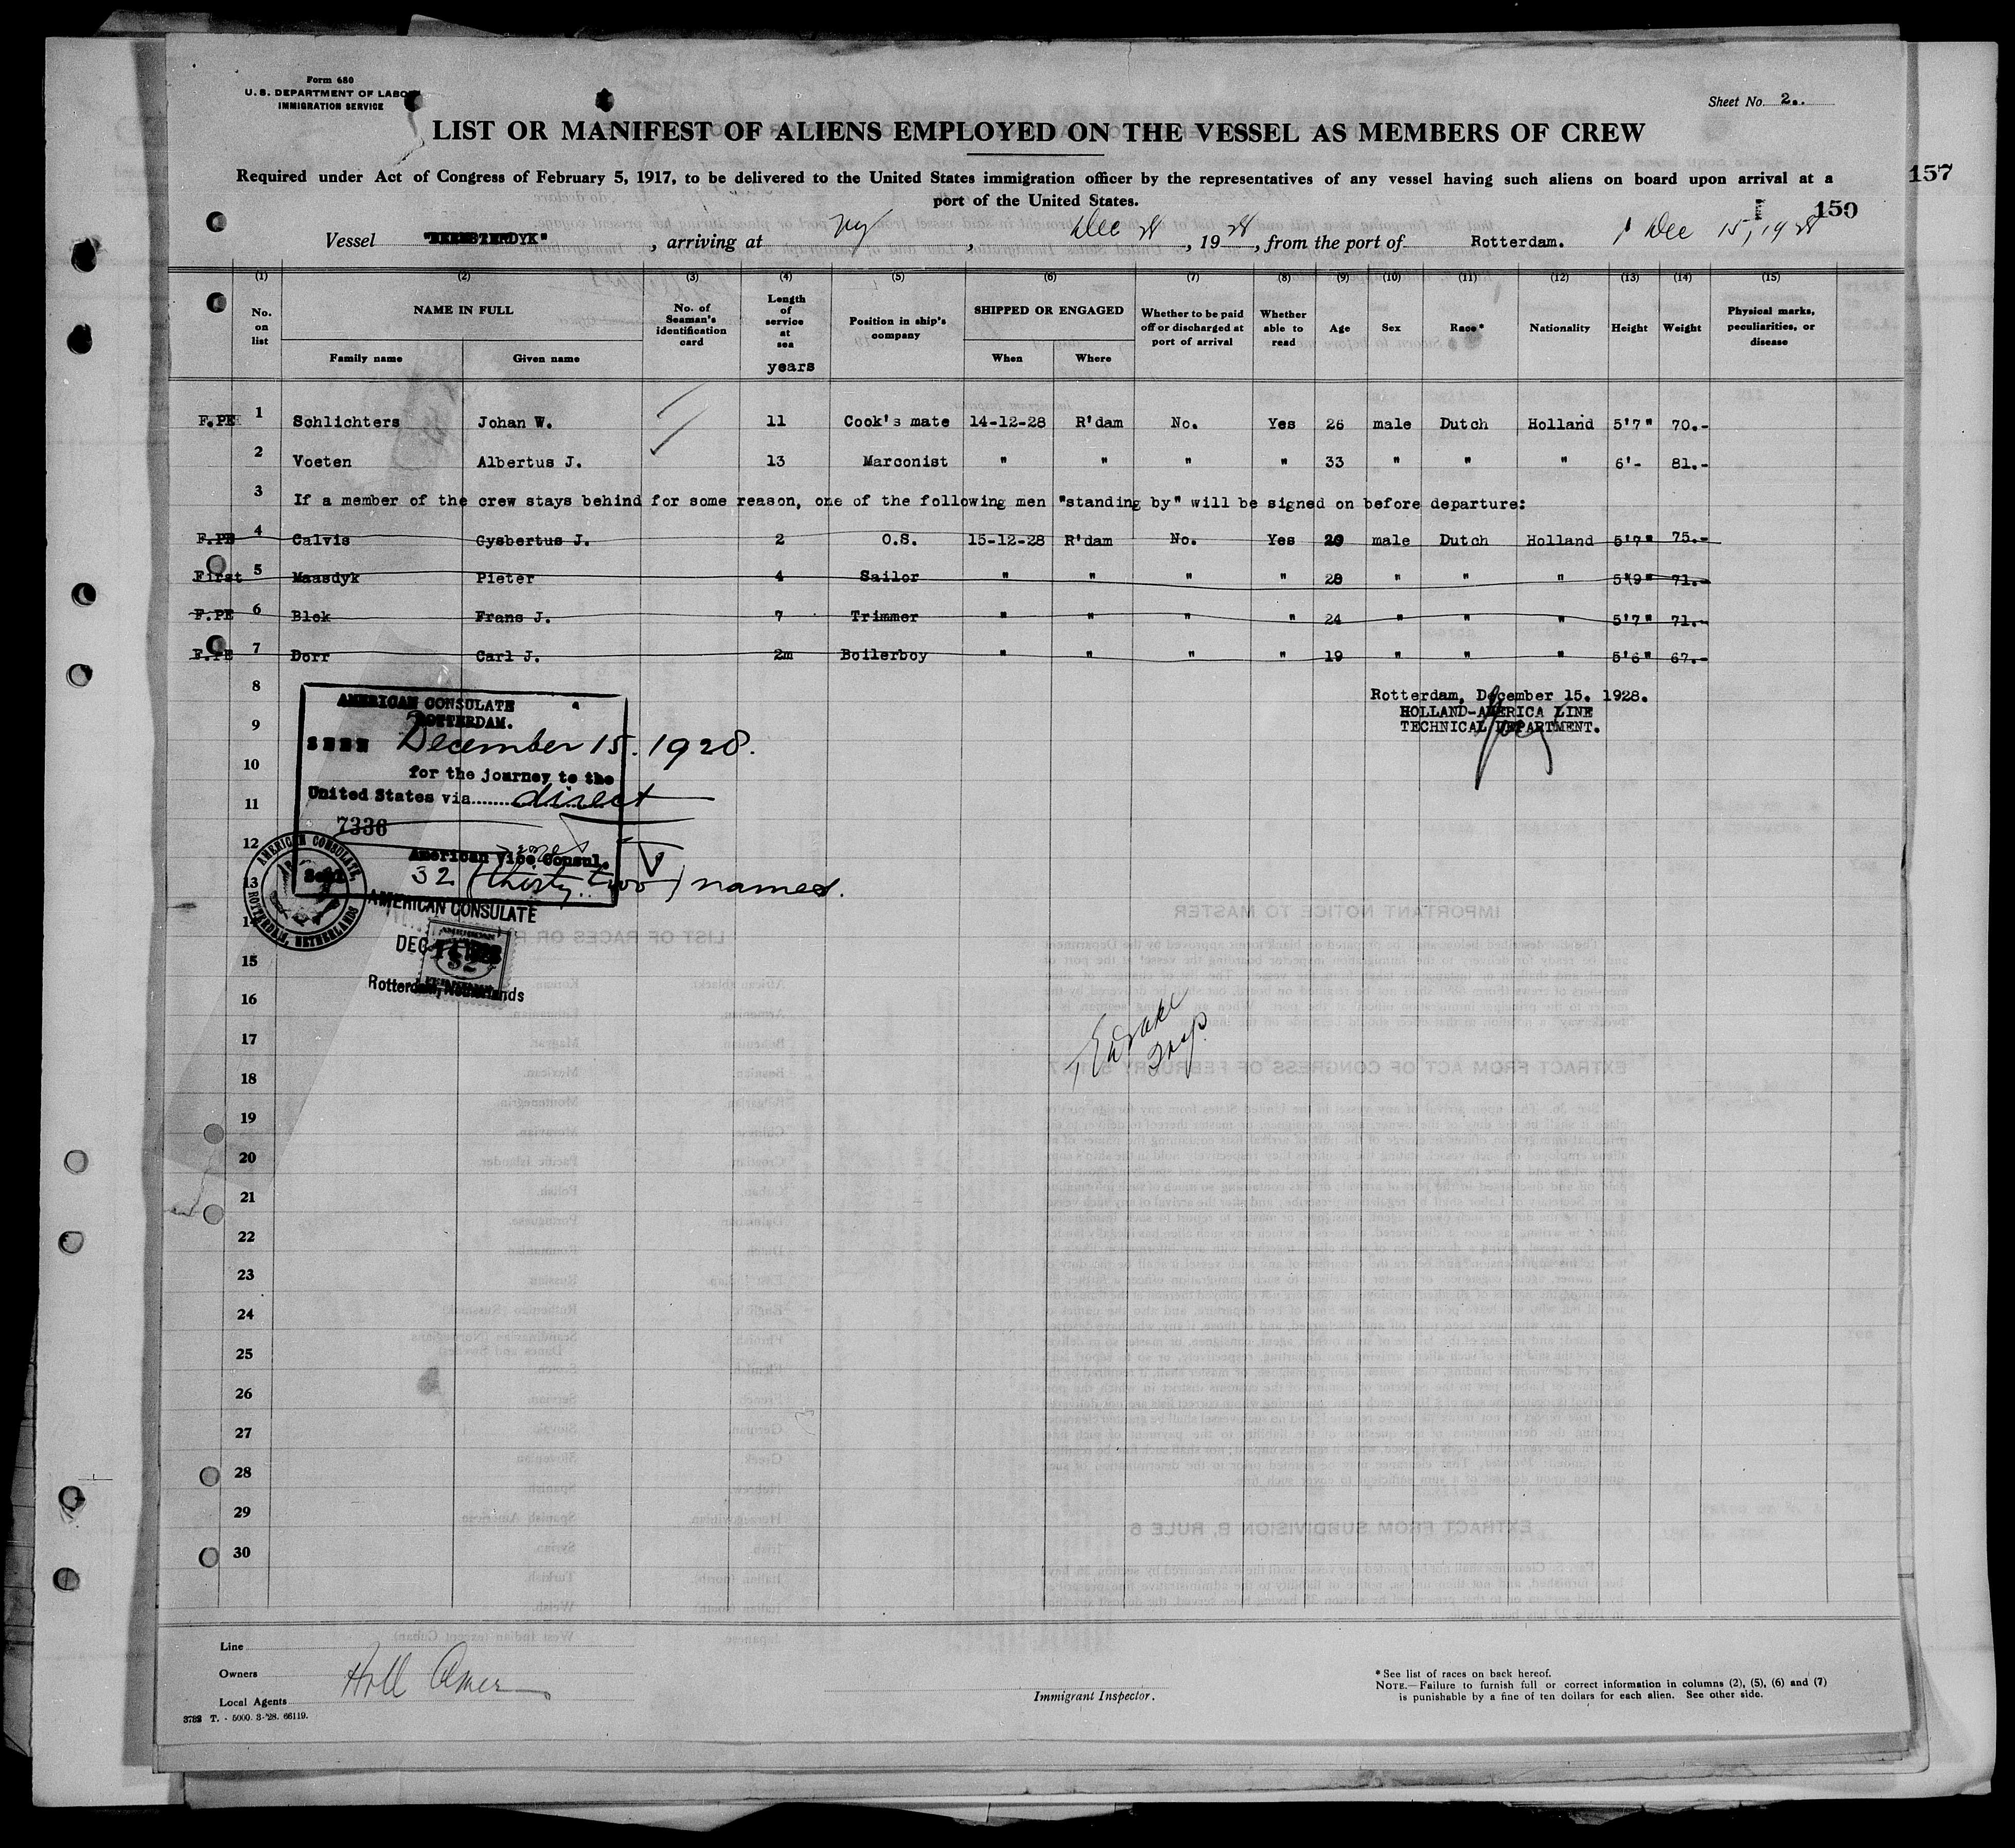 Form 680
U. S. DEPARTMENT OF LABOR
IMMIGRATION SERVICE
Sheet No. 2.
LIST OR MANIFEST OF ALIENS EMPLOYED ON THE VESSEL AS MEMBERS OF CREW
Required under Act of Congress of February 5, 1917, to be delivered to the United States immigration officer by the representatives of any vessel having such aliens on board upon arrival at a
port of the United States.
157
150
Vessel , arriving at NY , Dec 28 , 1928 , from the port of Rotterdam. Dec 15, 1928
(1) (2) (3) (4) (5) (6) (7) (8) (9) (10) (11) (12) (13) (14) (15)
No. on list NAME IN FULL Family name Given name No. of Seaman's identification card Length of service at sea years Position in ship's company SHIPPED OR ENGAGED When Where Whether to be paid off or discharged at port of arrival Whether able to read Age Sex Race* Nationality Height Weight Physical marks, peculiarities, or disease
F.PE 1 Schlichters Johan W. 11 Cook's mate 14-12-28 R'dam No. Yes 26 male Dutch Holland 5'7" 70.-
2 Voeten Albertus J. 13 Marconist " " " " 33 " " " 6'- 81.-
3 If a member of the crew stays behind for some reason, one of the following men "standing by" will be signed on before departure:
F.PE 4 Calvis Gysbertus J. 2 O.S. 15-12-28 R'dam No. Yes 20 male Dutch Holland 5'7" 75.-
First 5 Maasdyk Pieter 4 Sailor " " " " 28 " " " 5'9" 71.-
F.PE 6 Blok Frans J. 7 Trimmer " " " " 24 " " " 5'7" 71.-
F.PE 7 Dorr Carl J. 2m Boilerboy " " " " 19 " " " 5'6" 67.-
8
Rotterdam, December 15. 1928.
HOLLAND-AMERICA LINE
TECHNICAL DEPARTMENT.
AMERICAN CONSULATE
ROTTERDAM.
9
SEEN December 15. 1928.
10
for the journey to the
11
United States via direct
7336
12
American Vice Consul.
13
32 (thirty two) names.
AMERICAN CONSULATE, ROTTERDAM, NETHERLANDS
Seal
AMERICAN CONSULATE
14
DEC
Rotterdam, Netherlands
15
16
17
18
19
20
21
22
23
24
25
26
27
28
29
30
Line
Owners Holl Amer
Local Agents
3782 T. - 5000. 3-'28. 66119.
Immigrant Inspector.
* See list of races on back hereof.
NOTE.—Failure to furnish full or correct information in columns (2), (5), (6) and (7)
is punishable by a fine of ten dollars for each alien. See other side.